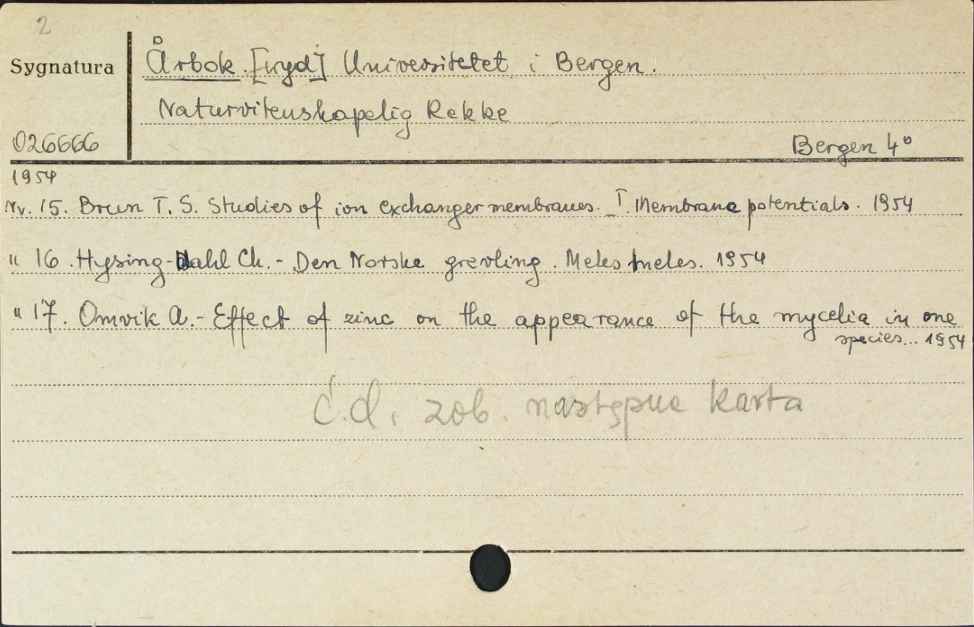 2
Sygnatura
Årbok [wyd] Universitetet i Bergen.
Naturvitenskapelig Rekke
026666
Bergen 4°
1954
Nr. 15. Brun T. S. Studies of ion exchanger membranes. I. Membrane potentials. 1954
" 16. Hysing-Dahl Ch. - Den Norske grevling. Meles meles. 1954
" 17. Omvik A. - Effect of zinc on the appearance of the mycelia in one
species... 1954
C.d. zob. następne karta